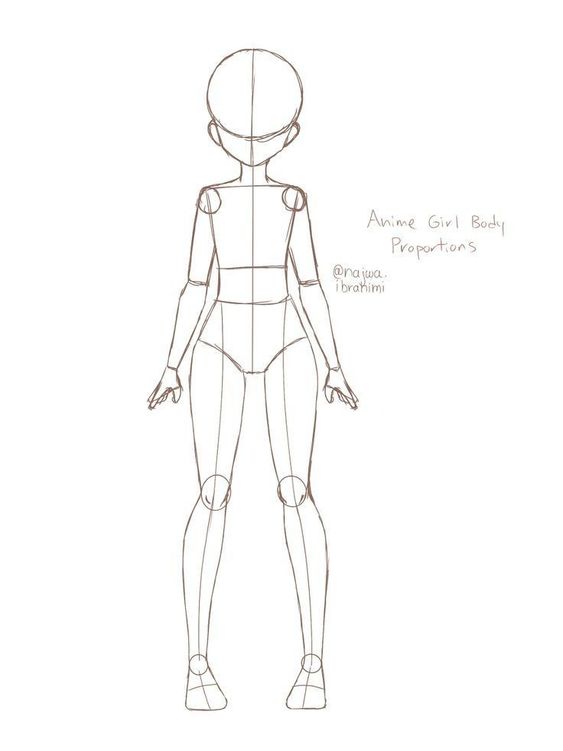 Anime Girl Body
Proportions
@najwa.
ibrahimi